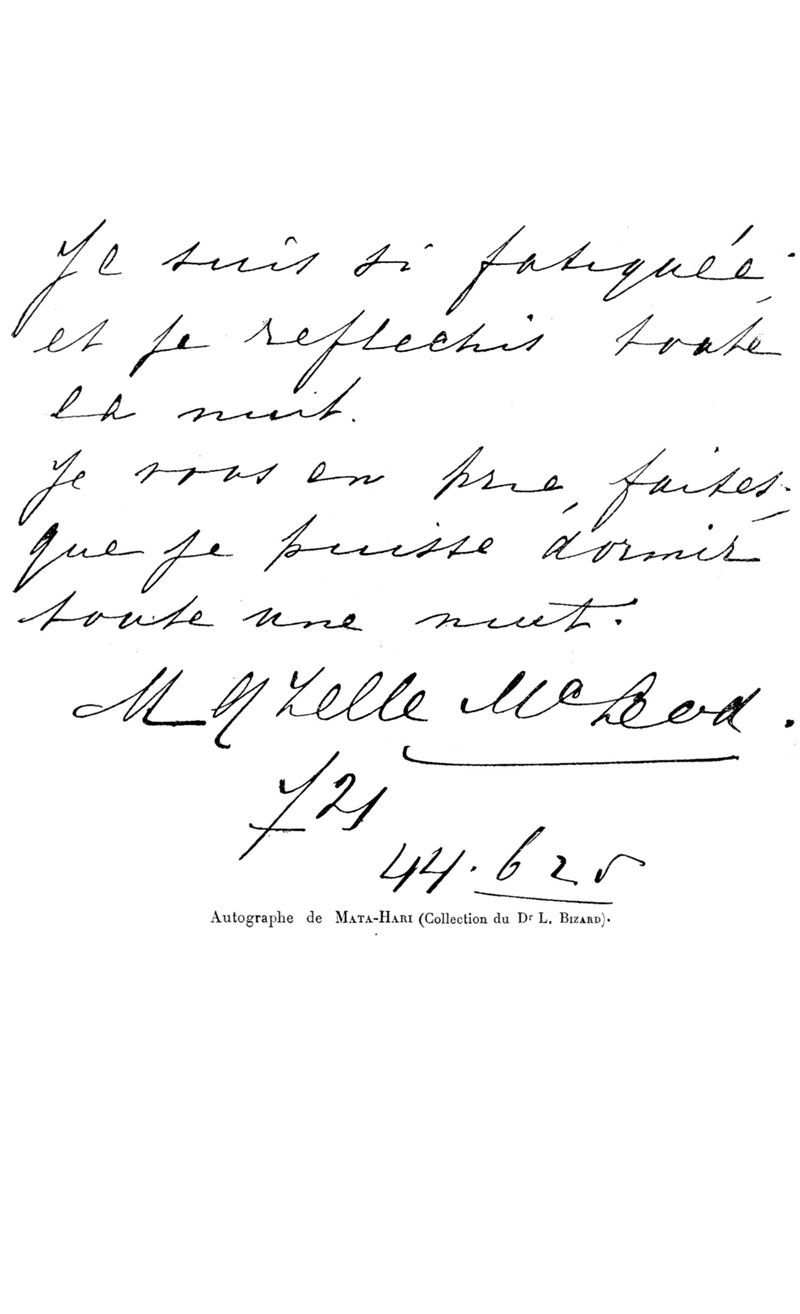 Je suis si fatiguée
et je reflechis toute
la nuit.
Je vous en prie, faites
que je puisse dormir
toute une nuit.
M G Zelle McLeod.
721
44.625
Autographe de MATA-HARI (Collection du Dr L. BIZARD).